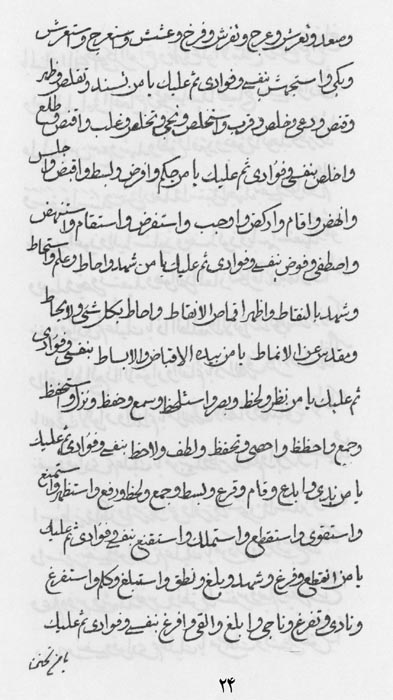 وصعد و تعرش و عرج و تفرش و فرخ و عشش و استعرج و استعرش
وبكى و استحوش بنفسي و فوادي ثم عليك يا من تسند و تقلص و ظهر
وقنص و دعى و خلص و قرب و استخلص و نجى و تخلص و غلب و اقنص و طلع
و اخلص بنفسي و فوادي ثم عليك يا من حكم و افرض و بسط و اقبض و اجلس
و انهض و اقام و اركض و اوجب و استفرض و استقام و استنهض
و اصطفى و فوض بنفسي و فوادي ثم عليك يا من شهد و احاط و علم و استحاط
و شهد بالنقاط و اظهر اقباض الانقاط و احاط بكل شئ و الاحاط
و مقدس عن الانماط يا من بيده الاقباض و الابساط بنفسي و فوادي
ثم عليك يا من نظر و لحظ و بصر و استلحظ و سمع و حفظ و نزل و استحفظ
و جمع و احظظ و احصى و تحفظ و لطف و الاحظ بنفسي و فوادي ثم عليك
يا من نادى و ابدع و قام و قرع و بسط و جمع و لحظ و رفع و استظهر و استمنع
و استقوى و استقطع و استملك و استقنع بنفسي و فوادي ثم عليك
يا من انقطع و فرغ و شهد و بلغ و نطق و استبلغ و كلم و استفرغ
و نادى و تفرغ و ناجى و ابلغ و القى و افرغ بنفسي و فوادي ثم عليك
يا من
۲۴